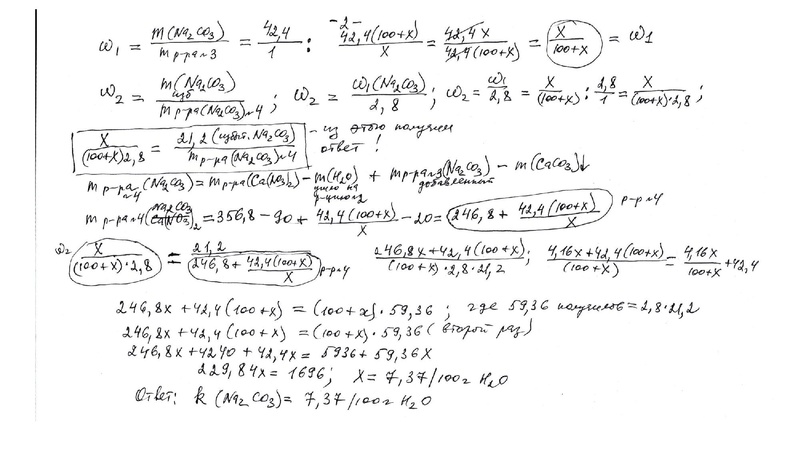 -2-
ω₁ = m(Na₂CO₃) / m р-ра№3 = 42,4 / 1 : 42,4(100+x) / x = 42,4x / 42,4(100+x) = x / 100+x = ω1
ω₂ = m(Na₂CO₃) изб / m р-ра(Na₂CO₃)№4 ; ω₂ = ω₁(Na₂CO₃) / 2,8 ; ω₂ = ω₁ / 2,8 = x / (100+x) : 2,8 / 1 = x / (100+x)·2,8 ;
x / (100+x)2,8 = 21,2 (избыт. Na₂CO₃) / m р-ра(Na₂CO₃)№4 - из этого получим ответ!
m р-ра №4 (Na₂CO₃) = m р-ра(Ca(NO₃)₂) - m(H₂O) ушло на р-цию№2 + m р-ра№3(Na₂CO₃) добавленной - m(CaCO₃)↓
m р-ра№4 (Na₂CO₃ Ca(NO₃)₂) = 356,8 - 90 + 42,4(100+x) / x - 20 = 246,8 + 42,4(100+x) / x р-р№4
ω₂ x / (100+x)·2,8 = 21,2 / 246,8 + 42,4(100+x) / x р-р№4 246,8x + 42,4(100+x) / (100+x)·2,8·21,2 ; 4,16x + 42,4(100+x) / (100+x) = 4,16x / 100+x + 42,4
246,8x + 42,4(100+x) = (100+x)·59,36 ; где 59,36 получилось = 2,8·21,2
246,8x + 42,4(100+x) = (100+x)·59,36 (второй раз)
246,8x + 4240 + 42,4x = 5936 + 59,36x
229,84x = 1696; x = 7,37/100г H₂O
Ответ: k (Na₂CO₃) = 7,37/100г H₂O